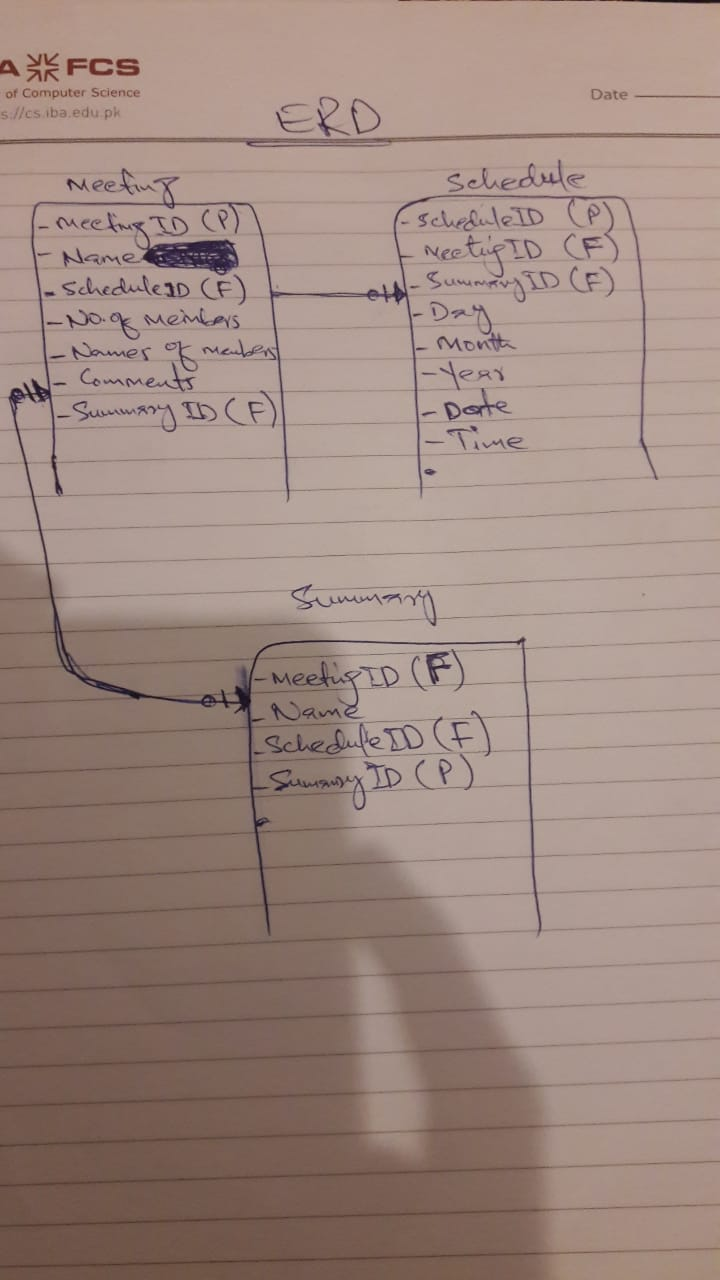 A FCS
of Computer Science
s://cs.iba.edu.pk
Date
ERD
Meeting
- Meeting ID (P)
- Name
- Schedule ID (F)
- No. of Members
- Names of members
- Comments
- Summary ID (F)
Schedule
- Schedule ID (P)
- MeetigID (F)
- Summary ID (F)
- Day
- Month
- Year
- Date
- Time
Summary
- MeetigID (F)
- Name
- Schedule ID (F)
- Summary ID (P)